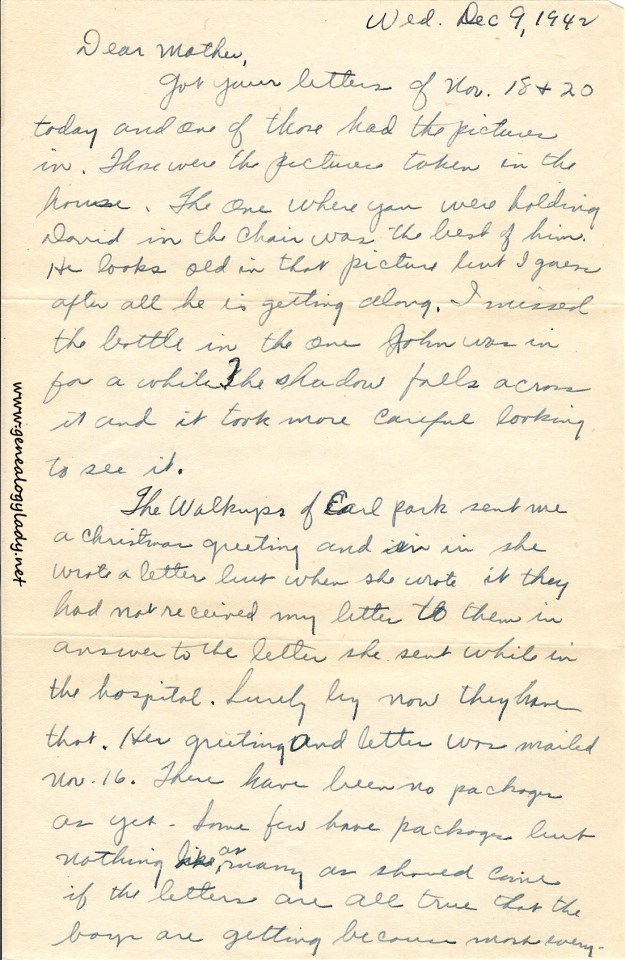 Wed. Dec 9, 1942
Dear Mother,
Got your letters of Nov. 18 & 20
today and one of those had the pictures
in. Those were the pictures taken in the
house. The one where you were holding
David in the chair was the best of him.
He looks old in that picture but I guess
after all he is getting along. I missed
the bottle in the one John was in
for a while The shadow falls across
it and it took more careful looking
to see it.
The Walkups of Earl park sent me
a christmas greeting and in in she
wrote a letter but when she wrote it they
had not received my letter to them in
answer to the letter she sent while in
the hospital. Surely by now they have
that. Her greeting and letter was mailed
Nov. 16. There have been no packages
as yet - Some few have packages but
nothing like as many as should come
if the letters are all true that the
boys are getting because most every-
www.genealogylady.net